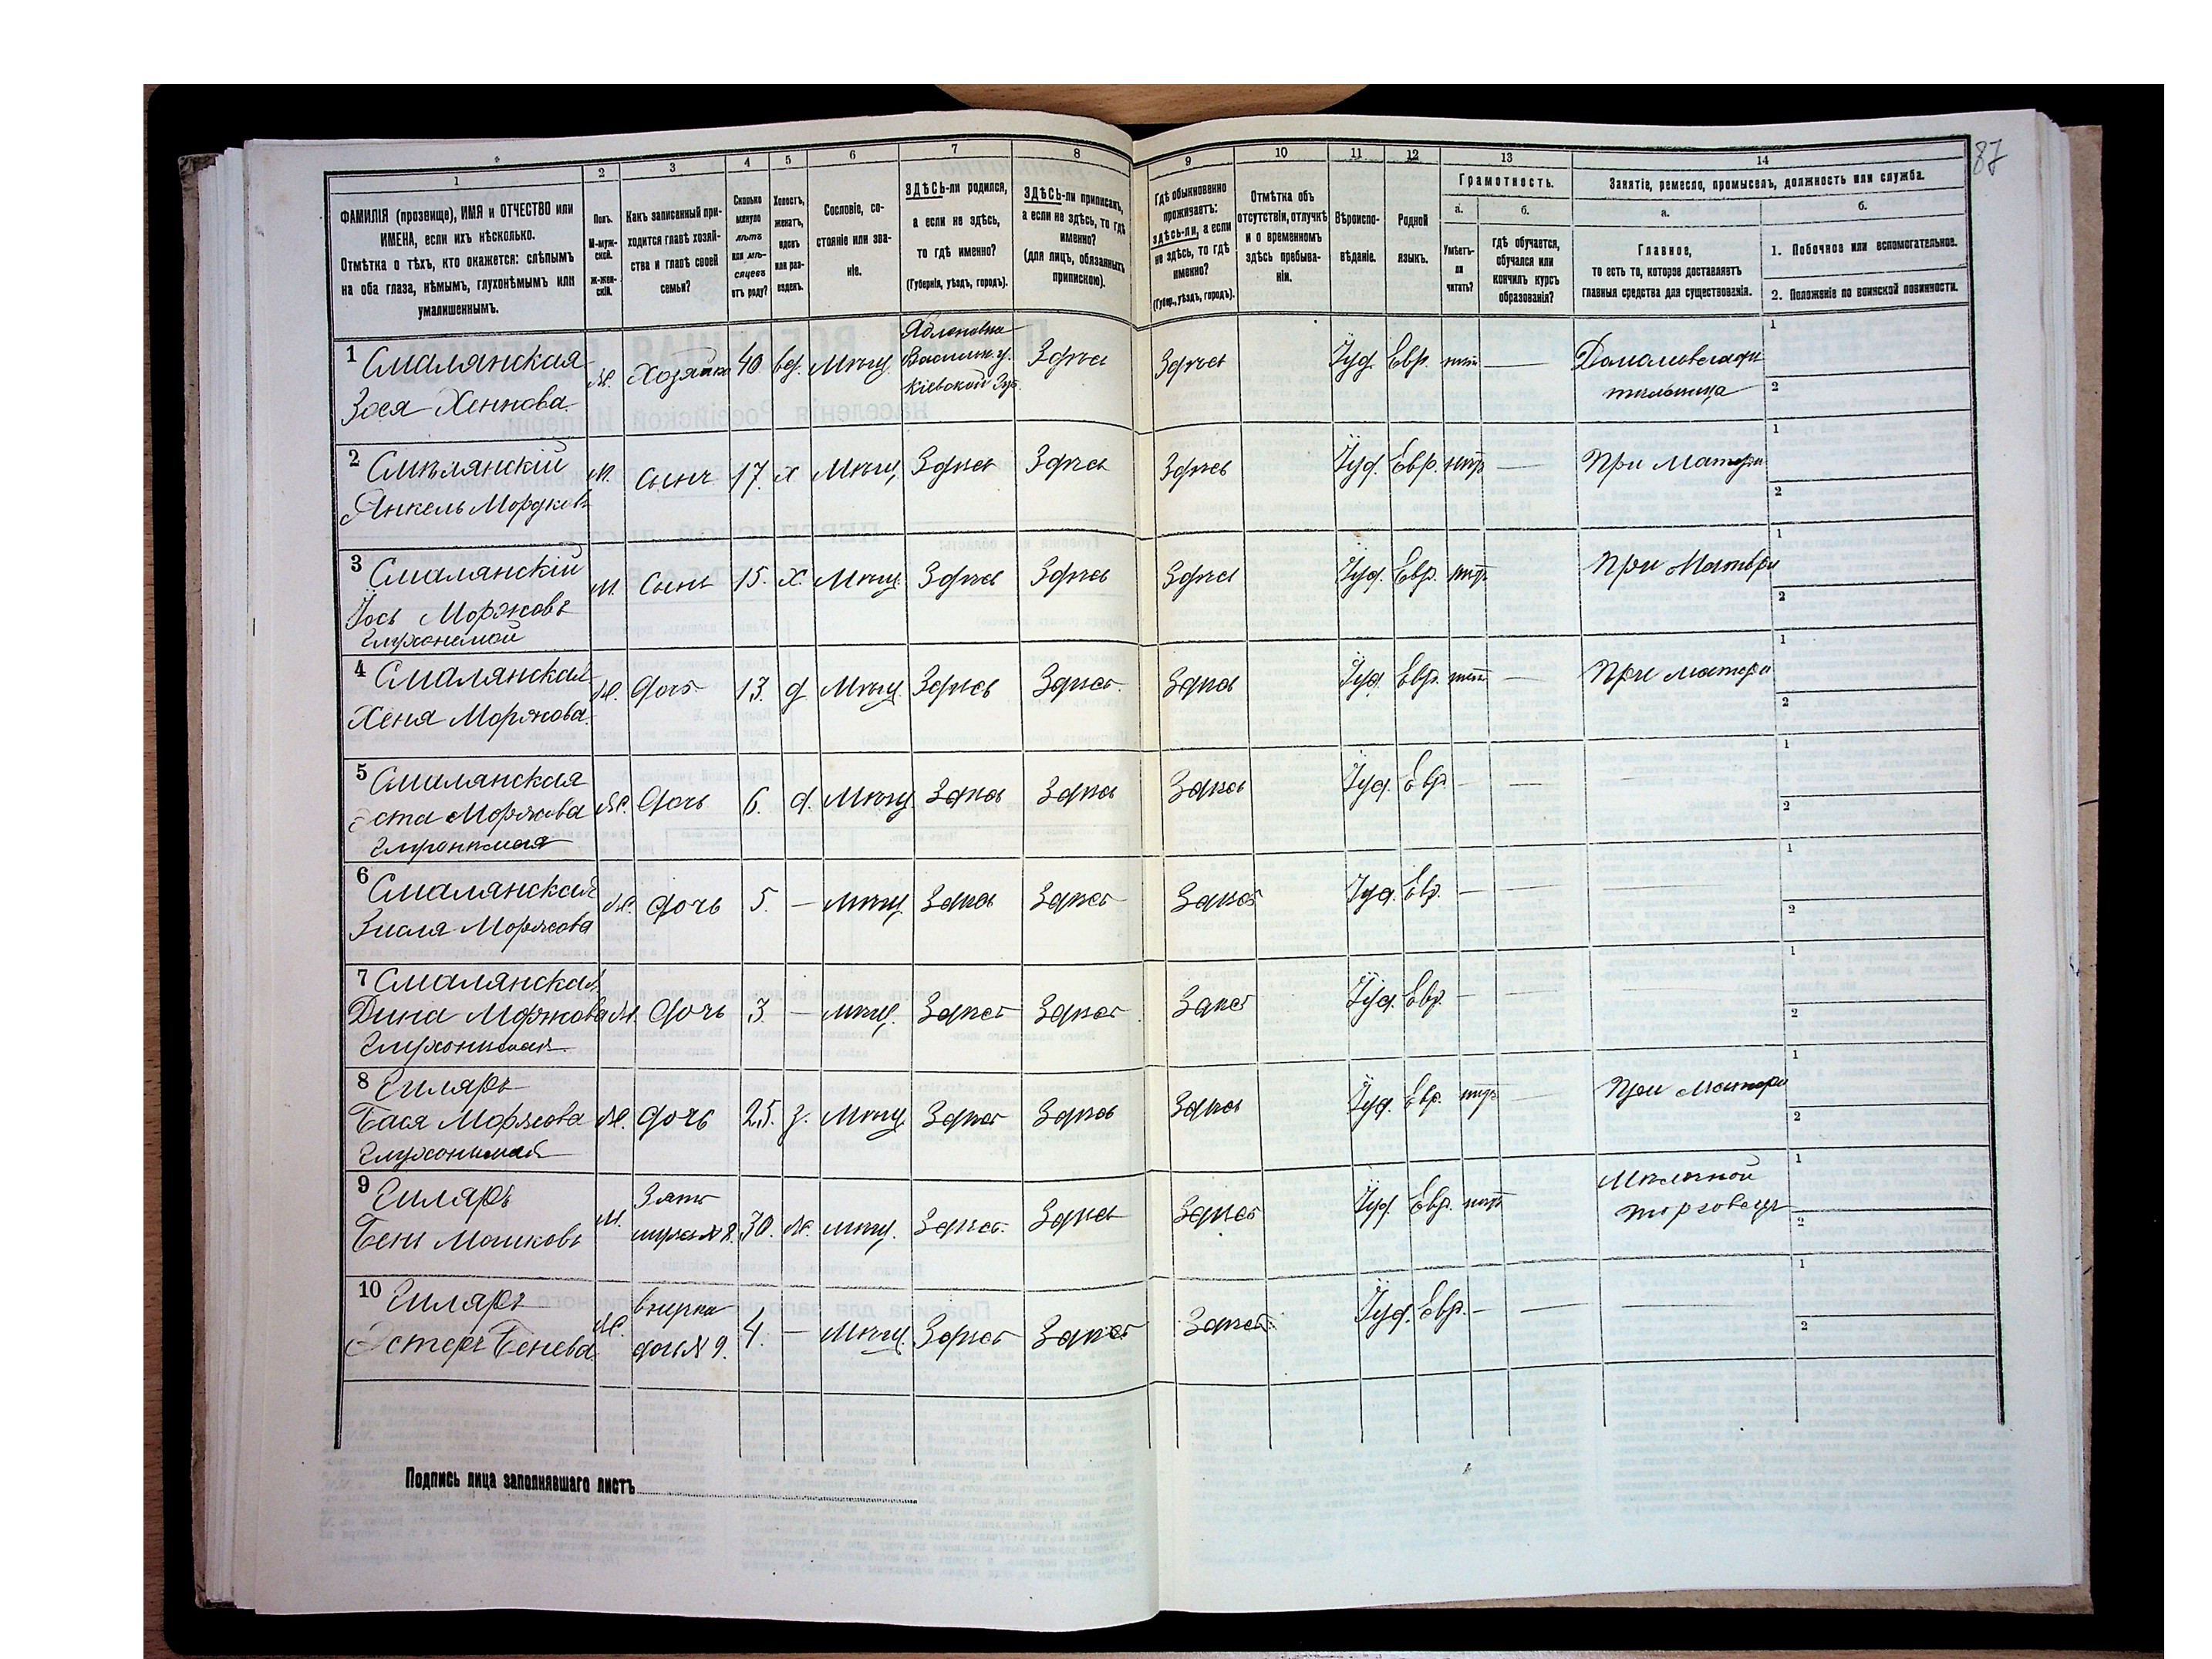 87
1 2 3 4 5 6 7 8 9 10 11 12 13 14
ФАМИЛІЯ (прозвище), ИМЯ и ОТЧЕСТВО или
ИМЕНА, если ихъ нѣсколько.
Отмѣтка о тѣхъ, кто окажется: слѣпымъ
на оба глаза, нѣмымъ, глухонѣмымъ или
умалишеннымъ.
Полъ.
М-муж-
ской.
Ж-жен-
скій.
Какъ записанный при-
ходится главѣ хозяй-
ства и главѣ своей
семьи?
Сколько
минуло
лѣтъ
или мѣ-
сяцевъ
отъ роду?
Холостъ,
женатъ,
вдовъ
или раз-
веденъ.
Сословіе, со-
стояніе или зва-
ніе.
ЗДѢСЬ-ли родился,
а если не здѣсь,
то гдѣ именно?
(Губернія, уѣздъ, городъ).
ЗДѢСЬ-ли приписанъ,
а если не здѣсь, то гдѣ
именно?
(для лицъ, обязанныхъ
припискою).
Гдѣ обыкновенно
проживаетъ:
здѣсь-ли, а если
не здѣсь, то гдѣ
именно?
(Губер., уѣздъ, городъ).
Отмѣтка объ
отсутствіи, отлучкѣ
и о временномъ
здѣсь пребыва-
ніи.
Вѣроиспо-
вѣданіе.
Родной
языкъ.
Грамотность.
а.
Умѣетъ-
ли
читать?
б.
гдѣ обучается,
обучался или
кончилъ курсъ
образованія?
Занятіе, ремесло, промыселъ, должность или служба.
а.
Главное,
то есть то, которое доставляетъ
главныя средства для существованія.
б.
1. Побочное или вспомогательное.
2. Положеніе по воинской повинности.
1 Смалянская
Зося Хеннова
ж. Хозяйка 40 вд. Мѣщ.
Васильк. у.
Кіевской Губ.
Здѣсь Здѣсь Іуд. Евр. нѣтъ — Домовладѣ
тельница 1 2
2 Смѣлянскій
Янкель Мордковъ
м. сынъ 17. х Мѣщ. Здѣсь Здѣсь Здѣсь Іуд. Евр. нѣтъ — При матери 1 2
3 Смалянскій
Іось Моржковъ
глухонемой
м. Сынъ 15. х. Мѣщ. Здѣсь Здѣсь Здѣсь Іуд. Евр. нѣтъ При Матери 1 2
4 Смалянская
Хеня Моржкова
ж. дочь 13. д. Мѣщ. Здѣсь Здѣсь Здѣсь Іуд. Евр. нѣтъ — При матери 1 2
5 Смалянская
Эста Моржкова
глухонѣмая
ж. дочь 6. д. Мѣщ. Здѣсь Здѣсь Здѣсь Іуд. Евр — — — 1 2
6 Смалянская
Моржкова
ж. дочь 5. — мѣщ. Здѣсь Здѣсь Здѣсь Іуд. Евр. — — — 1 2
7 Смалянская
Дина Моржкова
глухонимая
ж. дочь 3 — мѣщ. Здѣсь Здѣсь Здѣсь Іуд. Евр. — — — 1 2
8 Гиляръ
Бася Моржкова
глухонимая
ж. дочь 25. з. Мѣщ. Здѣсь Здѣсь Здѣсь Іуд. Евр. нѣтъ — При матери 1 2
9 Гиляръ
Бень Машковъ
м. Зять
мужъ № 8. 30. ж. мѣщ. Здѣсь. Здѣсь Здѣсь Іуд. Евр. нѣтъ
торговецъ 1 2
10 Гиляръ
Эстеръ Бенева
ж. внучка
дочь № 9. 4. — Мѣщ. Здѣсь Здѣсь Здѣсь Іуд. Евр. — — — 1 2
Подпись лица заполнявшаго листъ